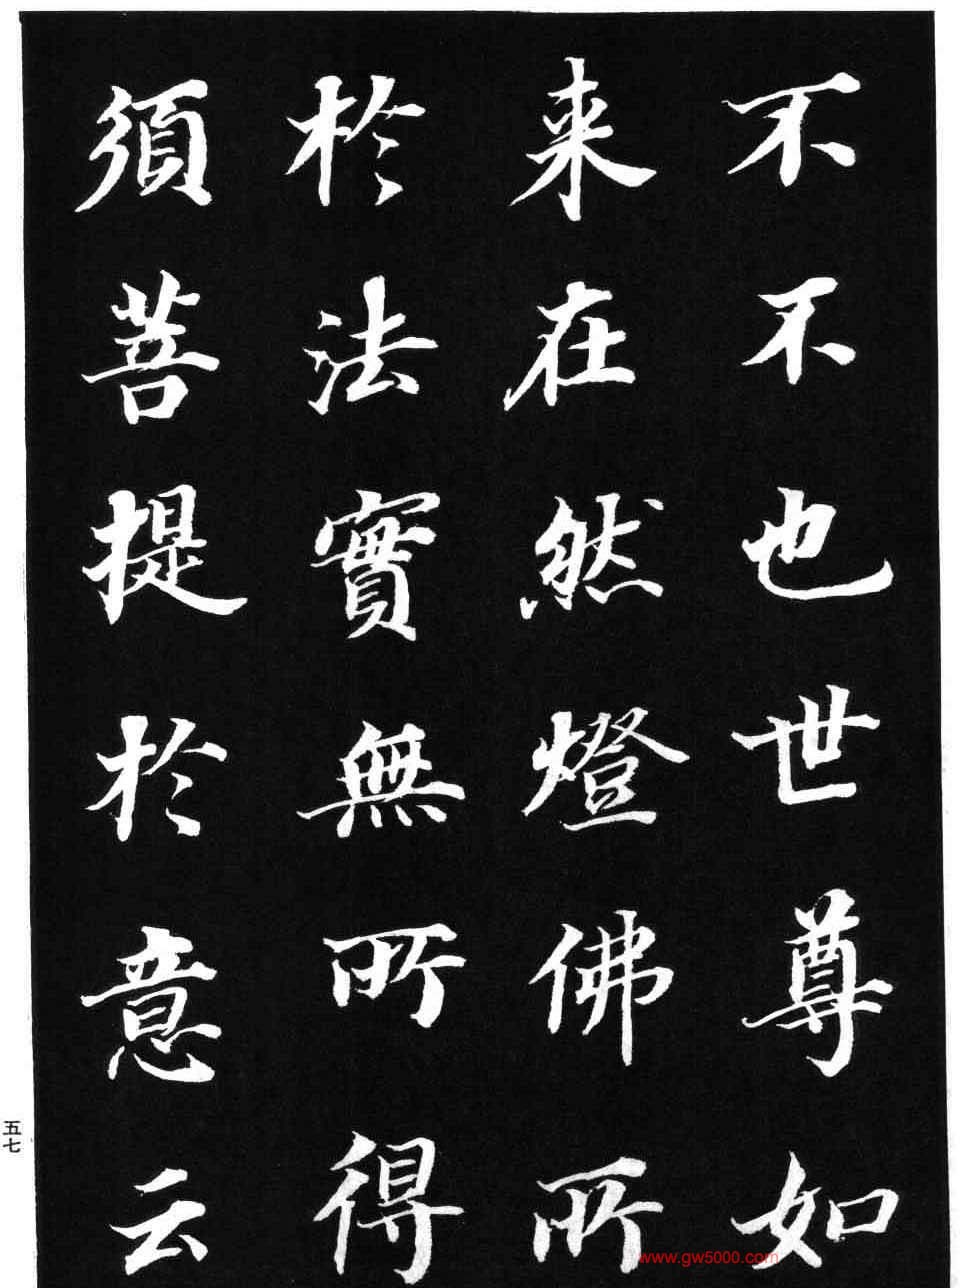 不不也世尊如
来在然燈佛所
於法實無所得
須菩提於意云
五七
www.gw5000.com